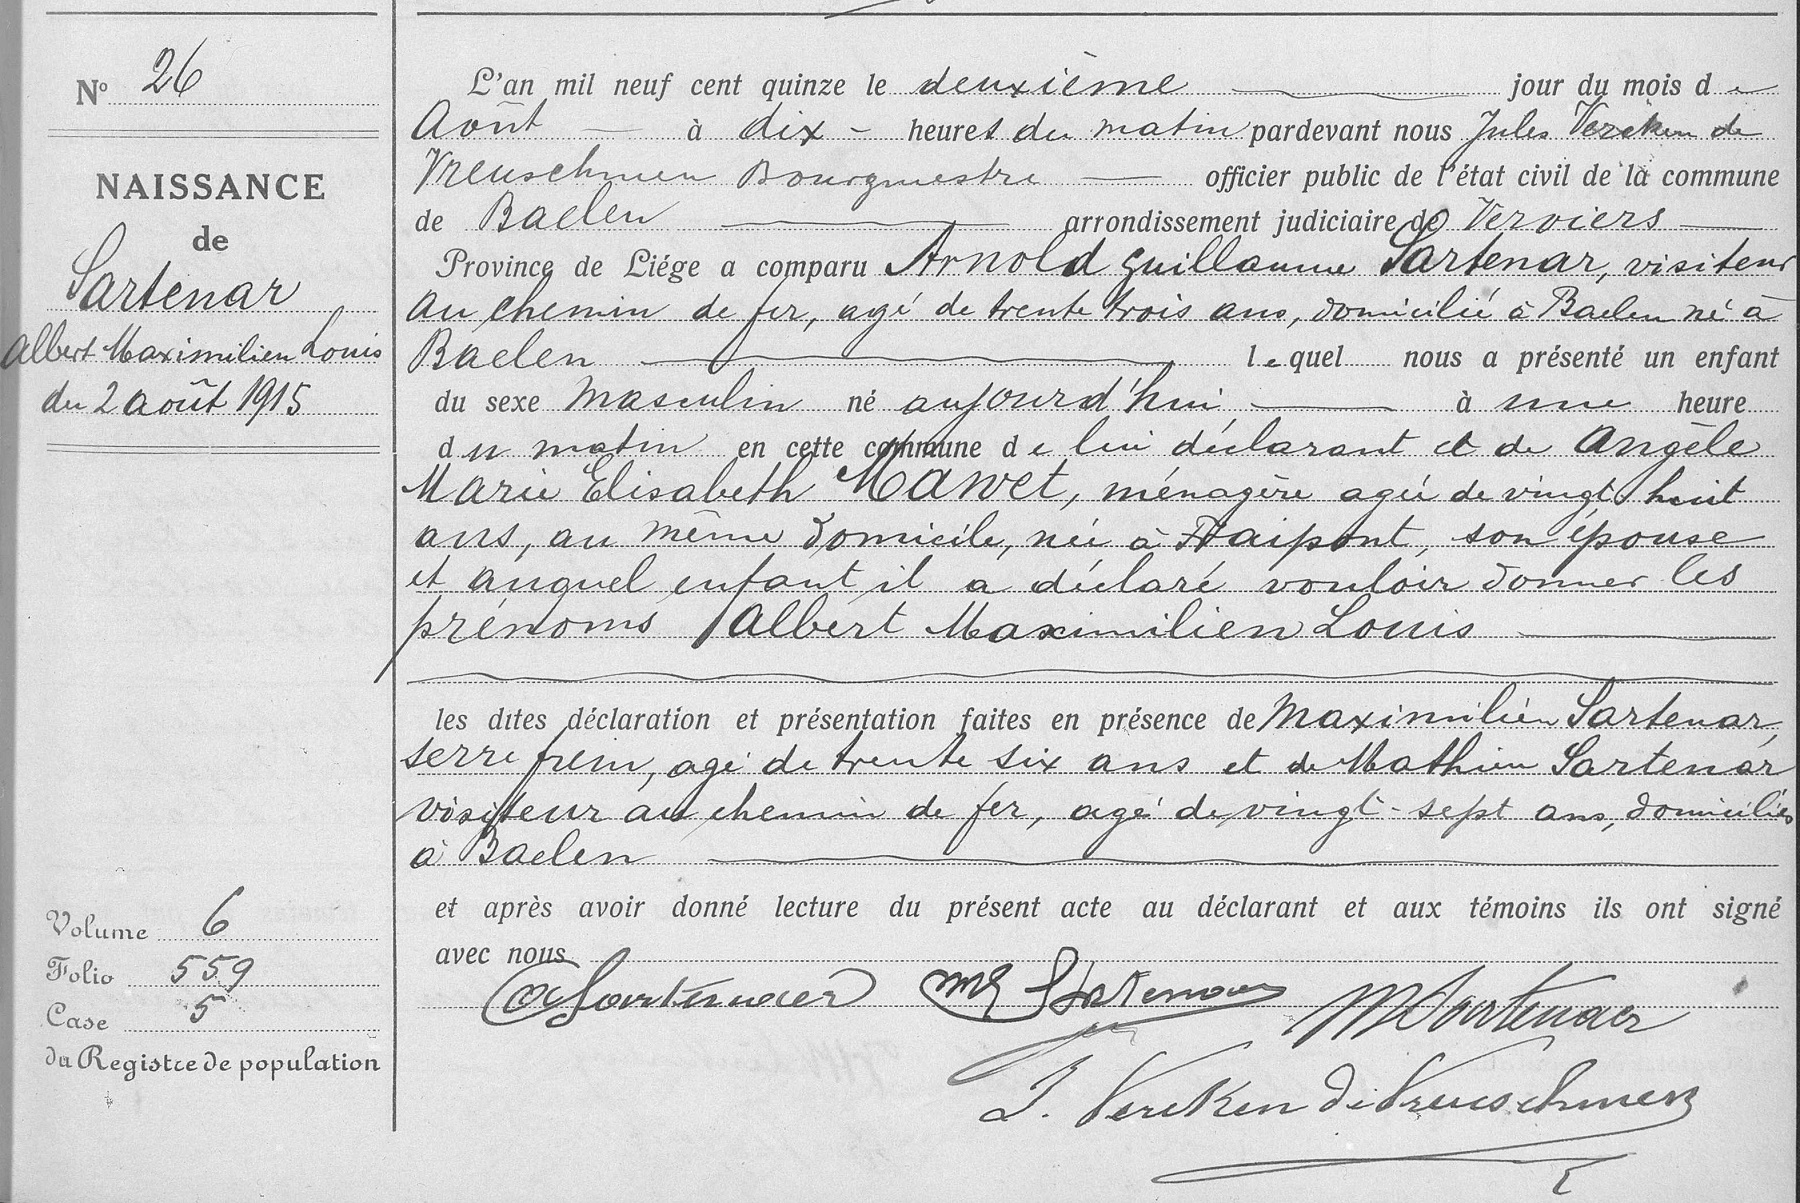 Nº 26
NAISSANCE
de
Sartenar
Albert Maximilien Louis
du 2 août 1915
Volume 6
Folio 559
Case 5
du Registre de population
L'an mil neuf cent quinze le deuxième jour du mois de
Août à dix heures du matin pardevant nous Jules Vercken de
Vreuschmen Bourgmestre officier public de l'état civil de la commune
de Baelen arrondissement judiciaire de Verviers
Province de Liége a comparu Arnold Guillaume Sartenar, visiteur
au chemin de fer, agé de trente trois ans, domicilié à Baelen né à
Baelen lequel nous a présenté un enfant
du sexe masculin né aujourd'hui à une heure
du matin en cette commune de lui déclarant et de Angèle
Marie Elisabeth Mawet, ménagère agée de vingt huit
ans, au même domicile, née à Fraipont, son épouse
et auquel enfant il a déclaré vouloir donner les
prénoms Albert Maximilien Louis
les dites déclaration et présentation faites en présence de Maximilien Sartenar,
serre frein, agé de trente six ans et de Mathieu Sartenar
visiteur au chemin de fer, agé de vingt-sept ans, domiciliés
à Baelen
et après avoir donné lecture du présent acte au déclarant et aux témoins ils ont signé
avec nous
Sartenaer M Sartenaer
J. Vercken de Vreuschmen